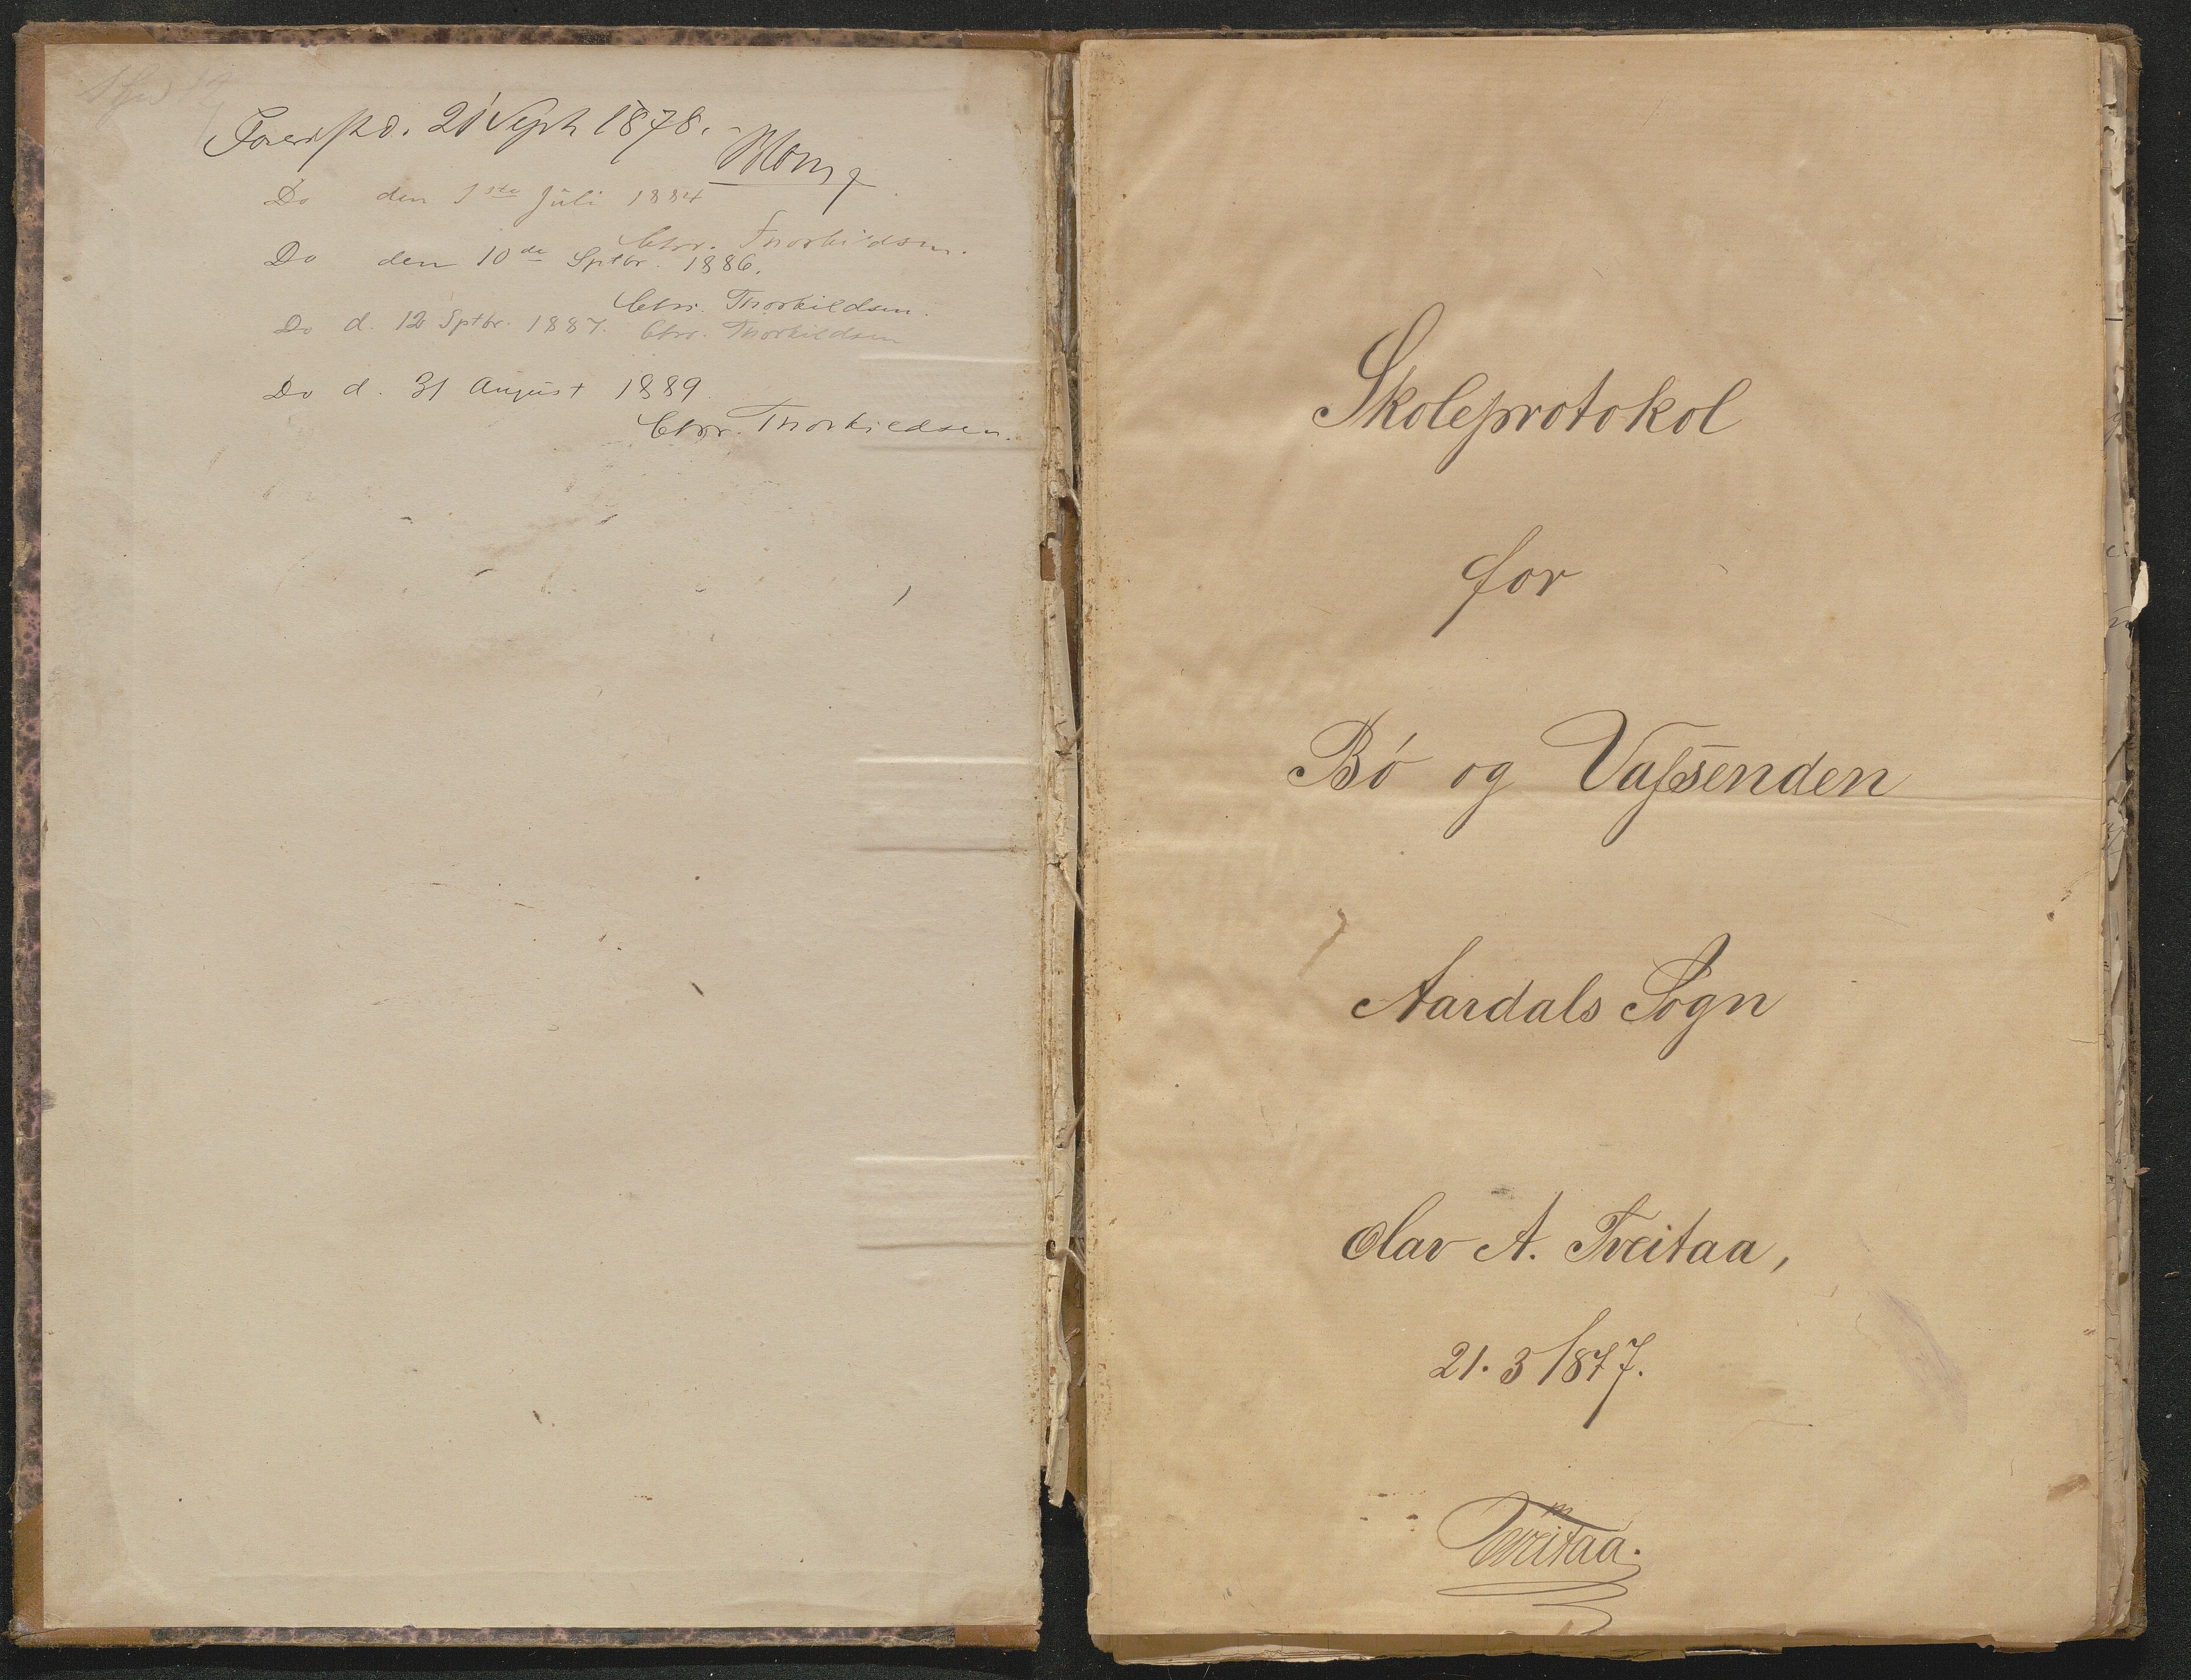 Forevist d. 21 Sept 1878.
Blom
Do den 1ste Juli 1884
Chr. Thorkildsen.
Do den 10de Sptbr. 1886.
Chr. Thorkildsen.
Do d. 12 Sptbr. 1887. Chr. Thorkildsen
Do d. 31 August 1889.
Chr. Thorkildsen.
Skoleprotokol
for
Bó og Vaſsenden
Aardals Sogn
Olav A. Tveitaa,
21.3 1877.
Tveitaa.